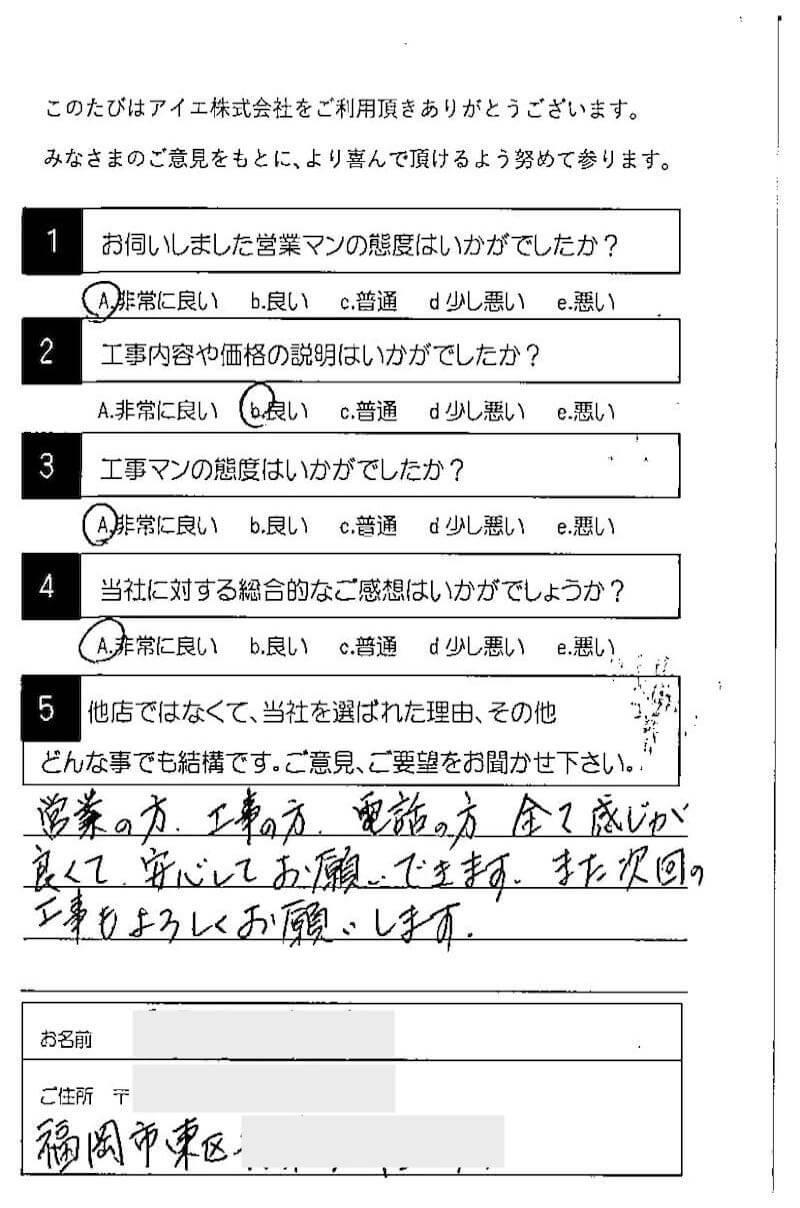 このたびはアイエ株式会社をご利用頂きありがとうございます。
みなさまのご意見をもとに、より喜んで頂けるよう努めて参ります。
1 お伺いしました営業マンの態度はいかがでしたか？
A.非常に良い b.良い c.普通 d少し悪い e.悪い
2 工事内容や価格の説明はいかがでしたか？
A.非常に良い b.良い c.普通 d少し悪い e.悪い
3 工事マンの態度はいかがでしたか？
A.非常に良い b.良い c.普通 d少し悪い e.悪い
4 当社に対する総合的なご感想はいかがでしょうか？
A.非常に良い b.良い c.普通 d少し悪い e.悪い
5 他店ではなくて、当社を選ばれた理由、その他
どんな事でも結構です。ご意見、ご要望をお聞かせ下さい。
営業の方、工事の方、電話の方 全て感じが
良くて、安心してお願いできます。また次回の
工事もよろしくお願いします。
お名前
ご住所 〒
福岡市東区